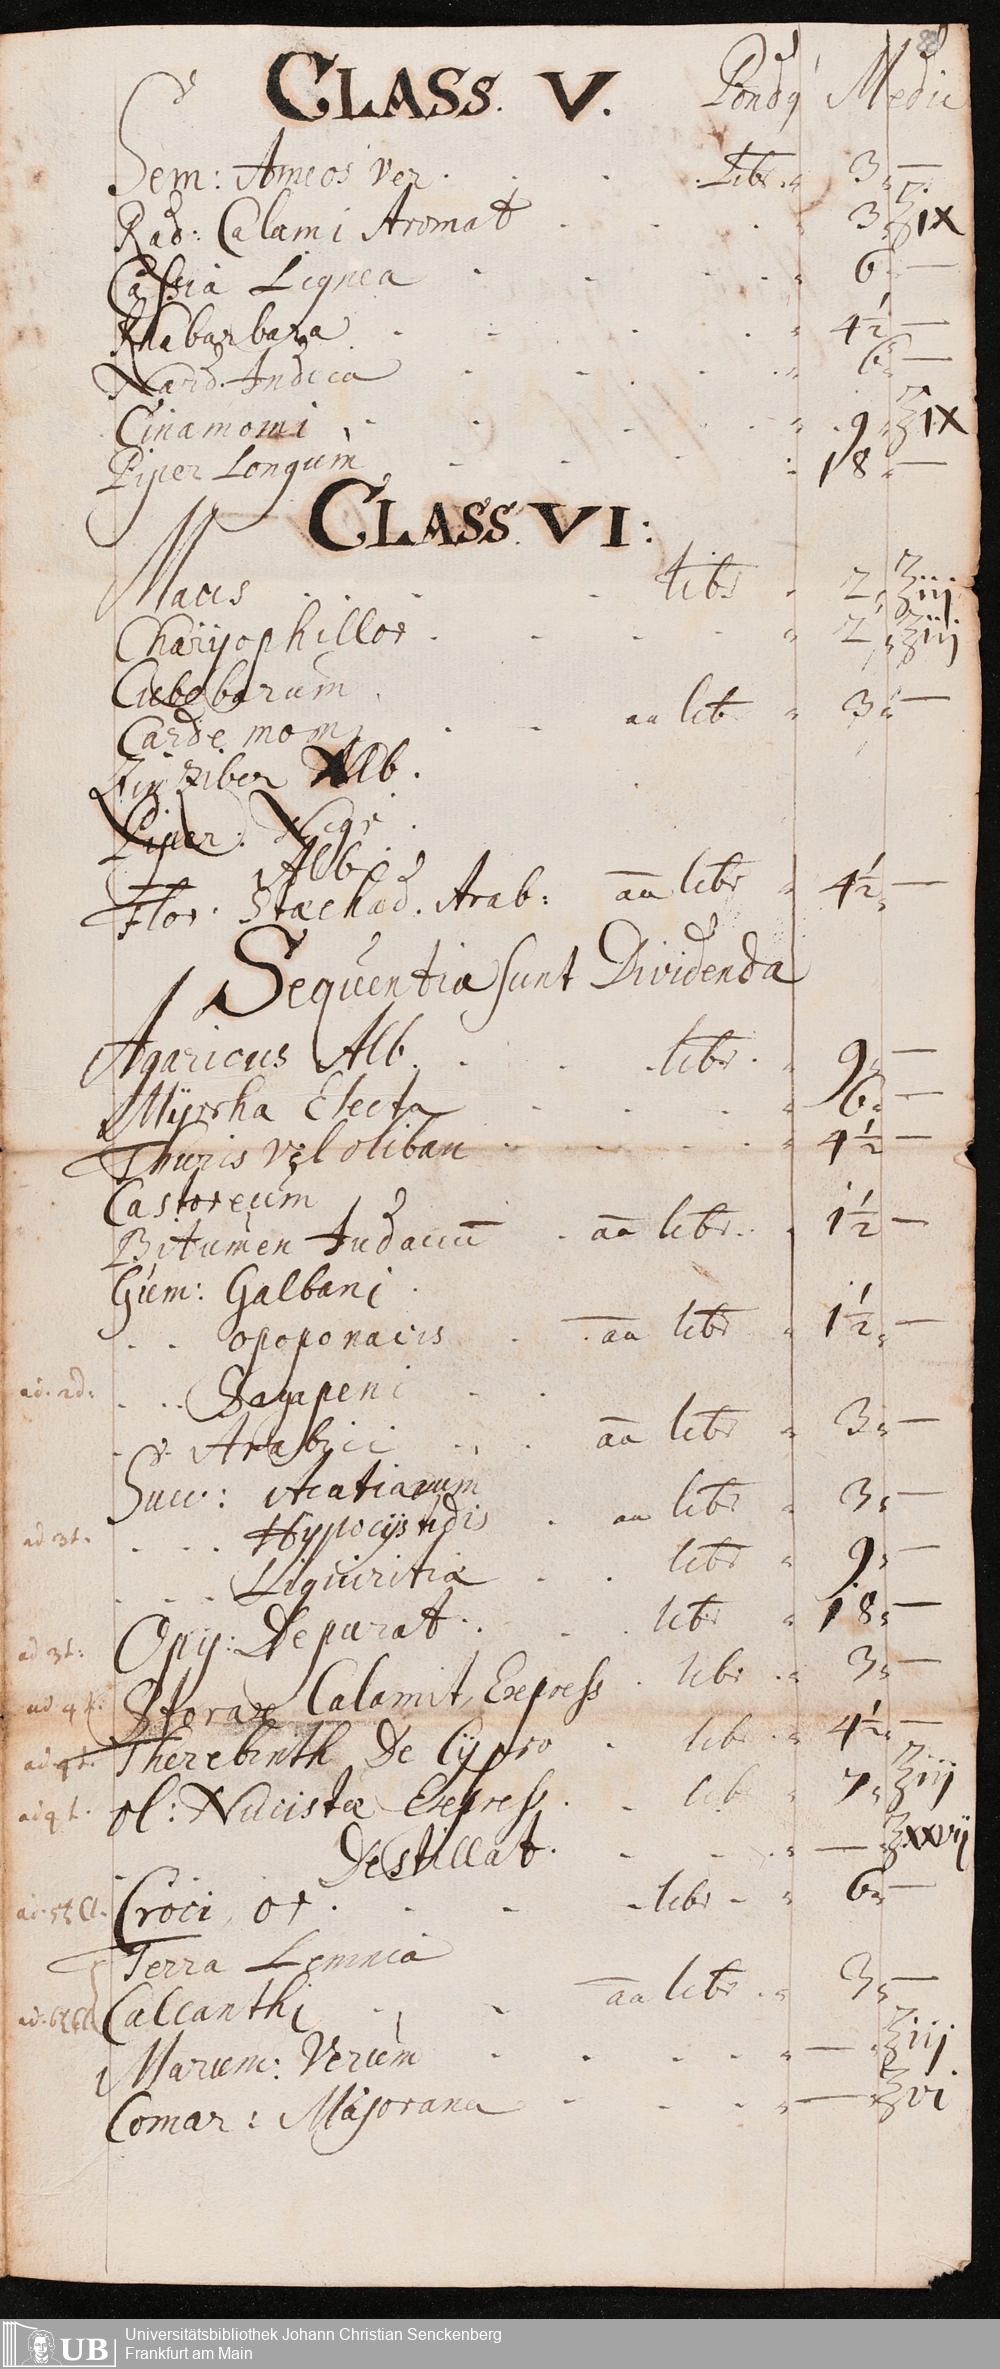 CLASS. V. Pondq Medic
Sem: Ameos ver. libr. 3 —
Rad: Calami Aromat 3 ʒIX
Cassia Lignea 6 —
Rhabarbara 4½ —
Nard. Indica 6 —
Cinamomi 9 ʒIX
Piper Longum 18 —
CLASS. VI:
Macis libr 2 ʒiij
Charÿophillor 2 ʒiij
Cubebarum
Cardemom aa libr 3 —
Zinziber Alb.
Piper: Nigr.
Alb.
Flor. Stæchad. Arab: aa libr 4½ —
Sequentia sunt Dividenda
Agaricus Alb. libr. 9 —
Mÿrrha Electa 6 —
Thuris vel oliban 4½ —
Castoreum
Bitumen Judaicu̅ aa libr. 1½ —
Gum: Galbani
opoponacis aa libr 1½ —
ad. 2d: Sagapeni
Arabici aa libr 3 —
Succ: Acatiarum
ad 3t. Hypocÿstidis aa libr 3 —
Liquiritia libr 9 —
Opij: Depurat libr 18 —
ad 3t: Storax Calamit, Express libr 3 —
ad 4t: Therebinth De Cÿpro libr 4½ —
ad 4t. ol: Nucistæ Express. libr 7 ʒiij
Destillat. — ʒxxvij
ad. 5t Cl. Croci, or. libr 6 —
Terra Lemnia
ad. 6t Cl Calcanthi aa libr 3 —
Marum: Verum — ʒiij
Comar: Majorana — ʒvi
UB Universitätsbibliothek Johann Christian Senckenberg
Frankfurt am Main